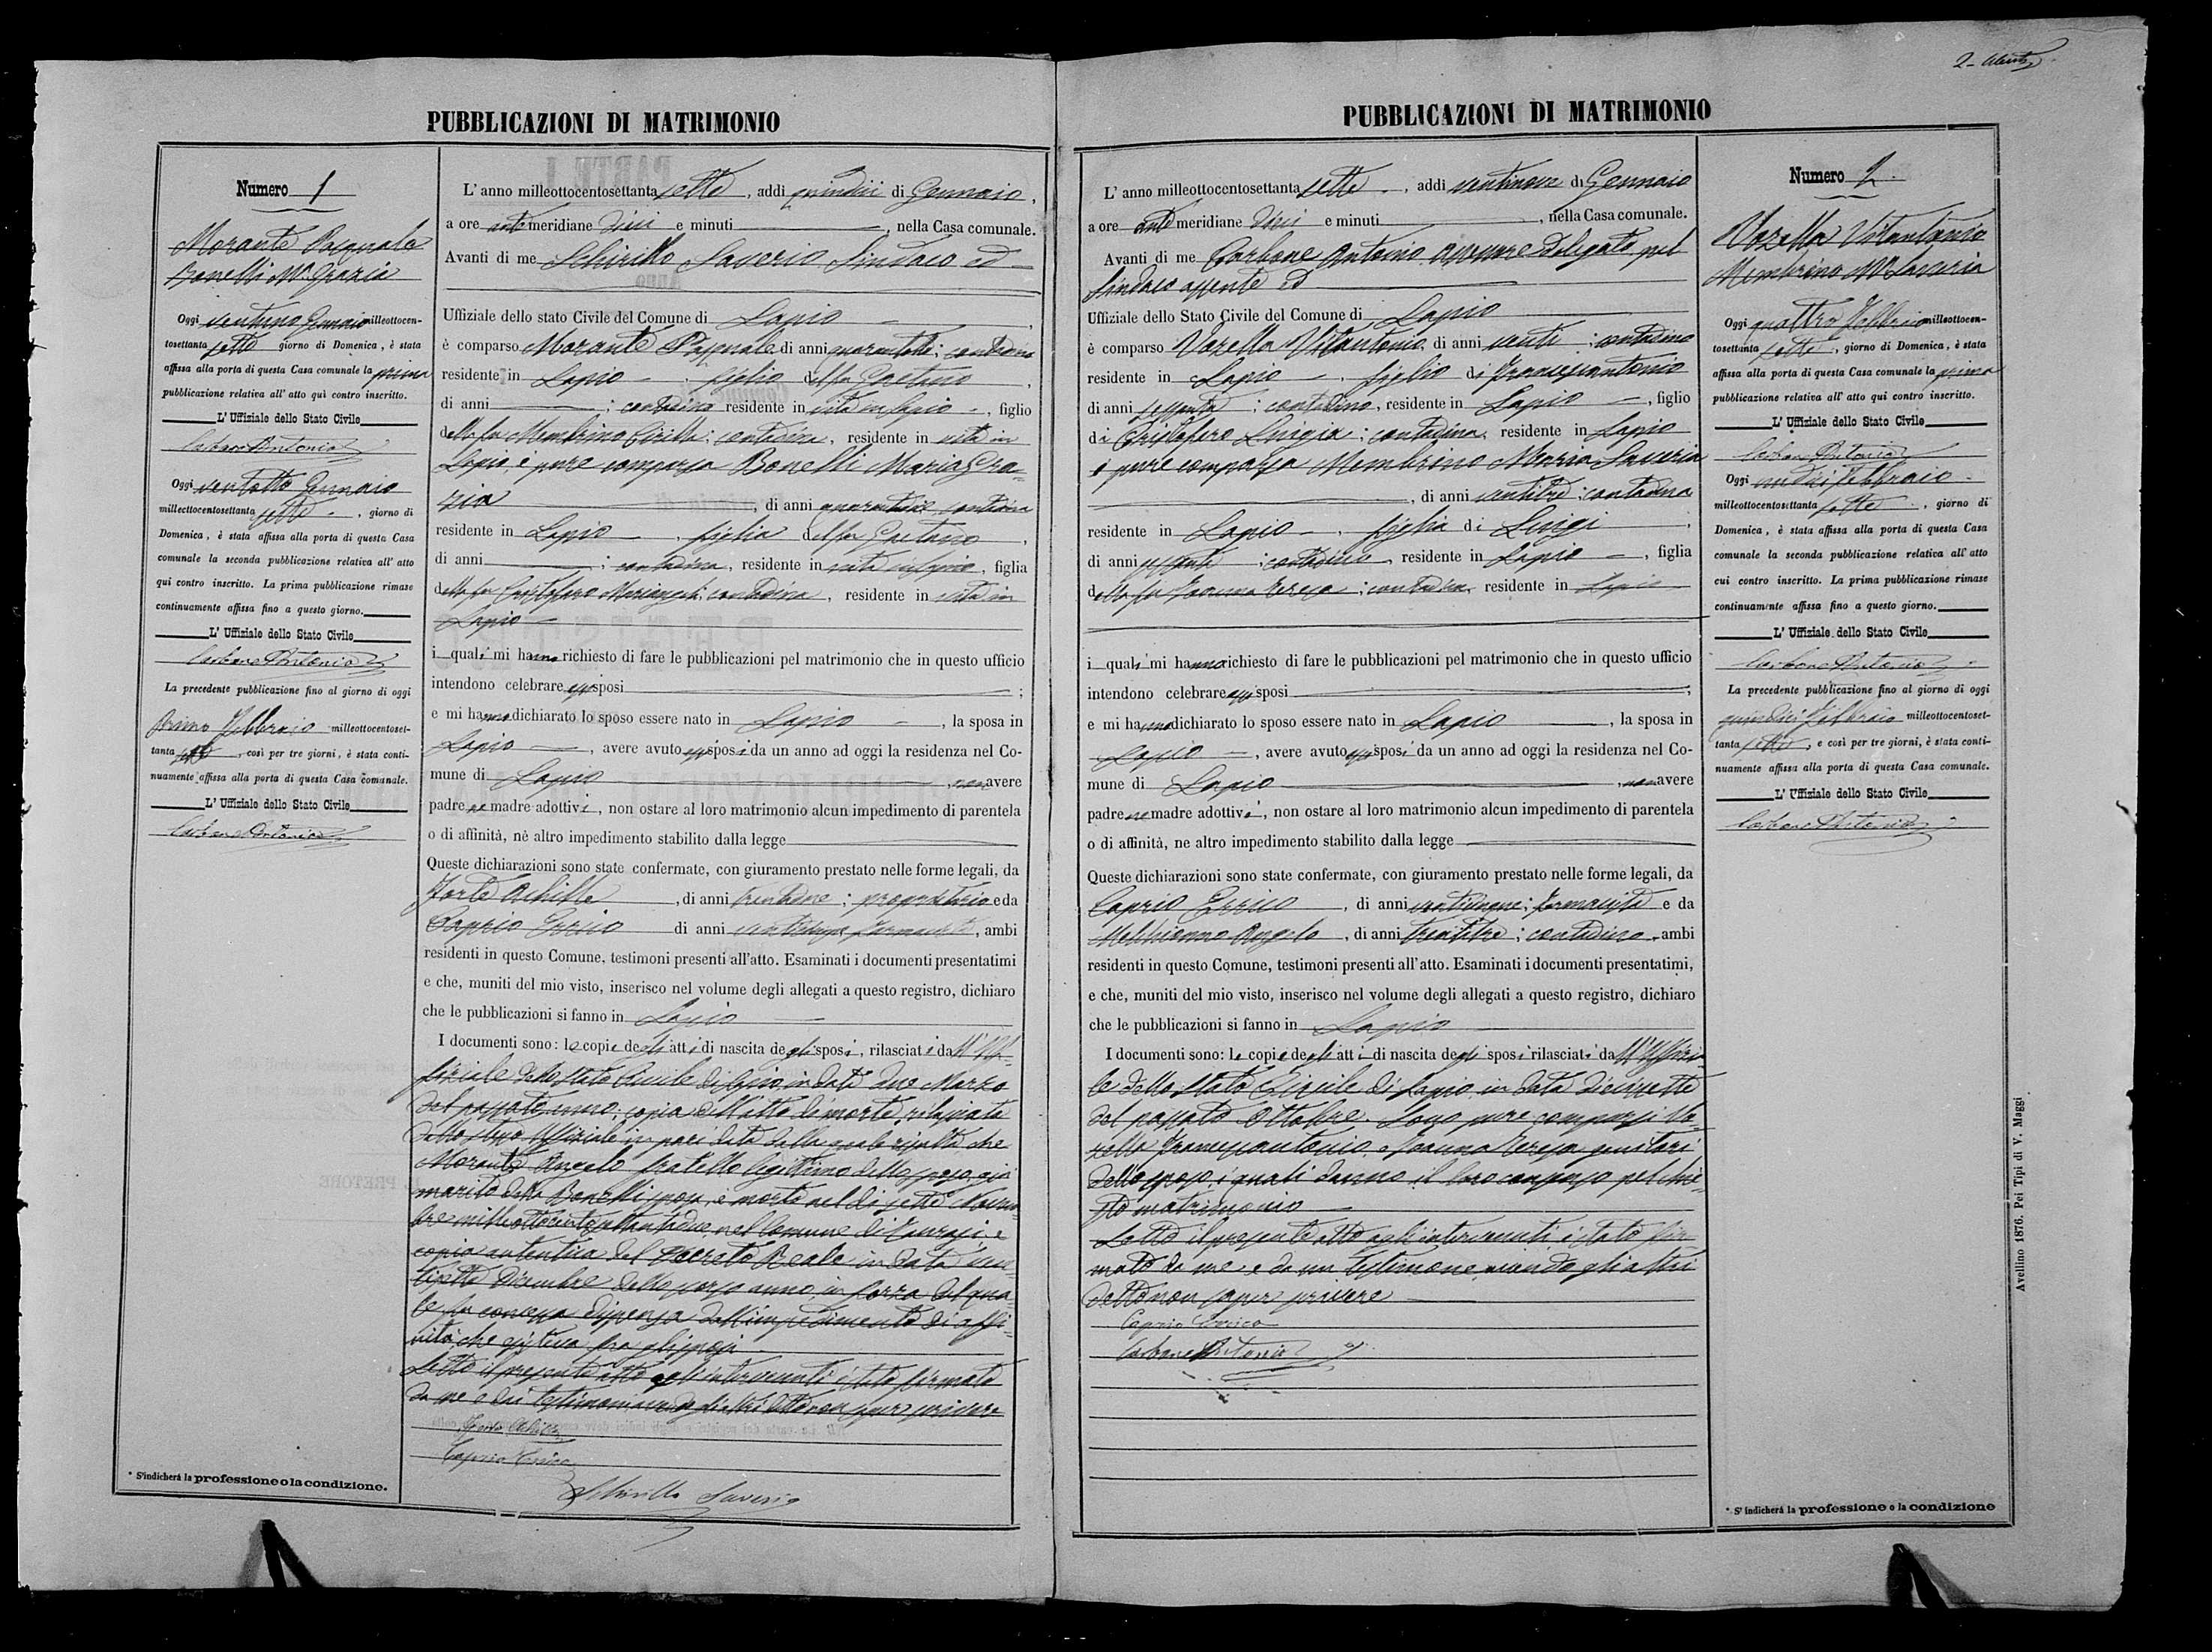 2-
PUBBLICAZIONI DI MATRIMONIO
Numero 1
Morante Pasquale
Bonelli Mª Grazia
Oggi ventuno Gennaio milleottocen-
tosettanta sette giorno di Domenica, è stata
affissa alla porta di questa Casa comunale la prima
pubblicazione relativa all' atto quì contro inscritto.
L' Uffiziale dello Stato Civile
Carbone Antonio
Oggi ventotto Gennaio
milleottocentosettanta sette, giorno di
Domenica, è stata affissa alla porta di questa Casa
comunale la seconda pubblicazione relativa all' atto
qui contro inscritto. La prima pubblicazione rimase
continuamente affissa fino a questo giorno.
L' Uffiziale dello Stato Civile
Carbone Antonio
La precedente pubblicazione fino al giorno di oggi
primo Febbraio milleottocentoset-
tanta sette, così per tre giorni, è stata conti-
nuamente affissa alla porta di questa Casa comunale.
L' Uffiziale dello Stato Civile
Carbone Antonio
* S'indicherà la professione o la condizione.
L' anno milleottocentosettanta sette, addi quindici di Gennaio,
a ore antemeridiane dieci e minuti, nella Casa comunale.
Avanti di me Schirillo Saverio Sindaco ed
Uffiziale dello stato Civile del Comune di Lapio,
è comparso Morante Pasquale di anni quarantotto; contadino
residente in Lapio, figlio del fu Gaetano,
di anni; contadino residente in vita in Lapio, figlio
della fu Membrino Cirilla; contadina, residente in vita in
Lapio, è pure comparsa Bonelli Maria Gra-
zia, di anni quarantadue contadina
residente in Lapio, figlia del fu Gaetano,
di anni; contadina, residente in vita in Lapio, figlia
della fu Cristofaro Mariangela; contadina, residente in vita in
Lapio
i quali mi hanno richiesto di fare le pubblicazioni pel matrimonio che in questo ufficio
intendono celebrare essi sposi;
e mi hanno dichiarato lo sposo essere nato in Lapio, la sposa in
Lapio, avere avuto essi sposi da un anno ad oggi la residenza nel Co-
mune di Lapio, non avere
padre ne madre adottivi, non ostare al loro matrimonio alcun impedimento di parentela
o di affinità, nè altro impedimento stabilito dalla legge
Queste dichiarazioni sono state confermate, con giuramento prestato nelle forme legali, da
Forte Achille, di anni trentadue; proprietario e da
Caprio Errico di anni venticinque farmacista, ambi
residenti in questo Comune, testimoni presenti all'atto. Esaminati i documenti presentatimi
e che, muniti del mio visto, inserisco nel volume degli allegati a questo registro, dichiaro
che le pubblicazioni si fanno in Lapio
I documenti sono: le copie degli atti di nascita degli sposi, rilasciati dall' Uf-
fiziale dello stato Civile di Lapio in data due Marzo
del passato anno; copia dell'atto di morte, rilasciata
dallo stesso Uffiziale in pari data dalla quale risulta che
Morante Angelo fratello legittimo dello sposo, già
marito della Bonelli sposa, è morto nel dì sette Novem-
bre milleottocentosettantadue, nel Comune di Taurasi; e
copia autentica del Decreto Reale in data ven-
tisette Dicembre dello scorso anno, in forza del qua-
le fu concessa dispensa dall'impedimento di affi-
nità, che esisteva fra gli sposi
Letto il presente atto agli intervenuti è stato firmato
da me e dai testimoni avendo gli altri detto non saper scrivere
Forte Achille
Caprio Errico
Schirillo Saverio
PUBBLICAZIONI DI MATRIMONIO
L' anno milleottocentosettanta sette, addi ventinove di Gennaio
a ore antemeridiane dieci e minuti, nella Casa comunale.
Avanti di me Carbone Antonio assessore delegato pel
Sindaco assente ed
Uffiziale dello Stato Civile del Comune di Lapio
è comparso Vozella Vitantonio, di anni venti; contadino
residente in Lapio, figlio di Francescantonio
di anni sessanta; contadino, residente in Lapio, figlio
di Cristofaro Luigia; contadina, residente in Lapio
è pure comparsa Membrino Maria Saveria
, di anni ventitre; contadina
residente in Lapio, figlia di Luigi
di anni sessanta; contadino, residente in Lapio, figlia
della fu Teresa; contadina, residente in Lapio
i quali mi hanno richiesto di fare le pubblicazioni pel matrimonio che in questo ufficio
intendono celebrare essi sposi;
e mi hanno dichiarato lo sposo essere nato in Lapio, la sposa in
Lapio, avere avuto essi sposi da un anno ad oggi la residenza nel Co-
mune di Lapio, non avere
padre ne madre adottivi, non ostare al loro matrimonio alcun impedimento di parentela
o di affinità, ne altro impedimento stabilito dalla legge
Queste dichiarazioni sono state confermate, con giuramento prestato nelle forme legali, da
Caprio Errico, di anni venticinque; farmacista e da
Melchionno Angelo, di anni trentatre; contadino, ambi
residenti in questo Comune, testimoni presenti all'atto. Esaminati i documenti presentatimi,
e che, muniti del mio visto, inserisco nel volume degli allegati a questo registro, dichiaro
che le pubblicazioni si fanno in Lapio
I documenti sono: le copie degli atti di nascita degli sposi rilasciati dall'Uffizia-
le dello stato Civile di Lapio in data diciassette
del passato Ottobre. Sono pure comparsi Vo-
zella Francescantonio e Teresa genitori
dello sposo, i quali danno il loro consenso pel chie-
sto matrimonio
Letto il presente atto agli intervenuti è stato fir-
mato da me e da un testimone avendo gli altri
detto non saper scrivere
Caprio Errico
Carbone Antonio
Numero 2
Vozella Vitantonio
Membrino Mª Saveria
Oggi quattro Febbraio milleottocen-
tosettanta sette, giorno di Domenica, è stata
affissa alla porta di questa Casa comunale la prima
pubblicazione relativa all' atto qui contro inscritto.
L' Uffiziale dello Stato Civile
Carbone Antonio
Oggi undici Febbraio
milleottocentosettanta sette, giorno di
Domenica, è stata affissa alla porta di questa Casa
comunale la seconda pubblicazione relativa all' atto
cui contro inscritto. La prima pubblicazione rimase
continuamente affissa fino a questo giorno.
L' Uffiziale dello Stato Civile
Carbone Antonio
La precedente pubblicazione fino al giorno di oggi
quindici Febbraio milleottocentoset-
tanta sette, e così per tre giorni, è stata conti-
nuamente affissa alla porta di questa Casa comunale.
L' Uffiziale dello Stato Civile
Carbone Antonio
* S' indicherà la professione o la condizione
Avellino 1876. Pei Tipi di V. Maggi